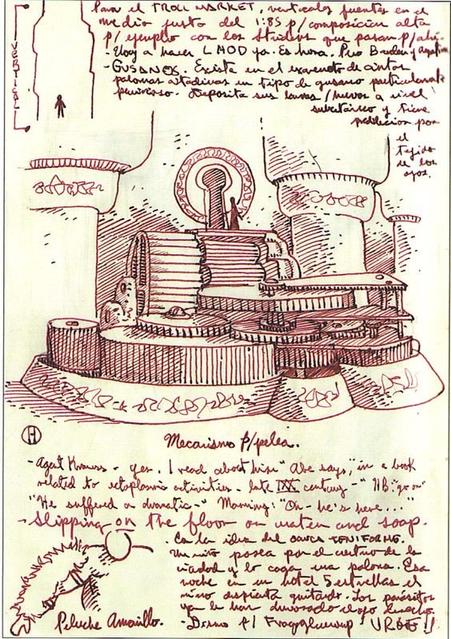 Para el TROLL MARKET, verticales fuertes en el
medio justo del 1:85 p/composición alta
p/ejemplo con los que pasan p/ahí
a hacer LMOD ya. Es hora. Pero
VERTICAL
- GUSANOS. Existe en el de ciertas
palomas un tipo de gusano particularmente
perverso. Deposita sus larvas/huevos a nivel
subcutáneo y tiene
predilección por
el
tejido
de los
ojos.
H
Mecanismo p/pelea.
- Agent Krauss - yes. I read about him "Abe says," in a book
related to ectoplasmic activities. - late IXX century - " HB: "go on"
"He suffered a dramatic -" Manning: "Oh - he's here..."
- Slipping on the floor on water and soap.
- Con la idea del
Un niño pasea por el centro de la
ciudad y lo caga una paloma. Esa
noche en un hotel 5 estrellas el
niño despierta gritando. Los parásitos
ya le han devorado el ojo derecho.
Peluche Amarillo.
- p/ URGE!!